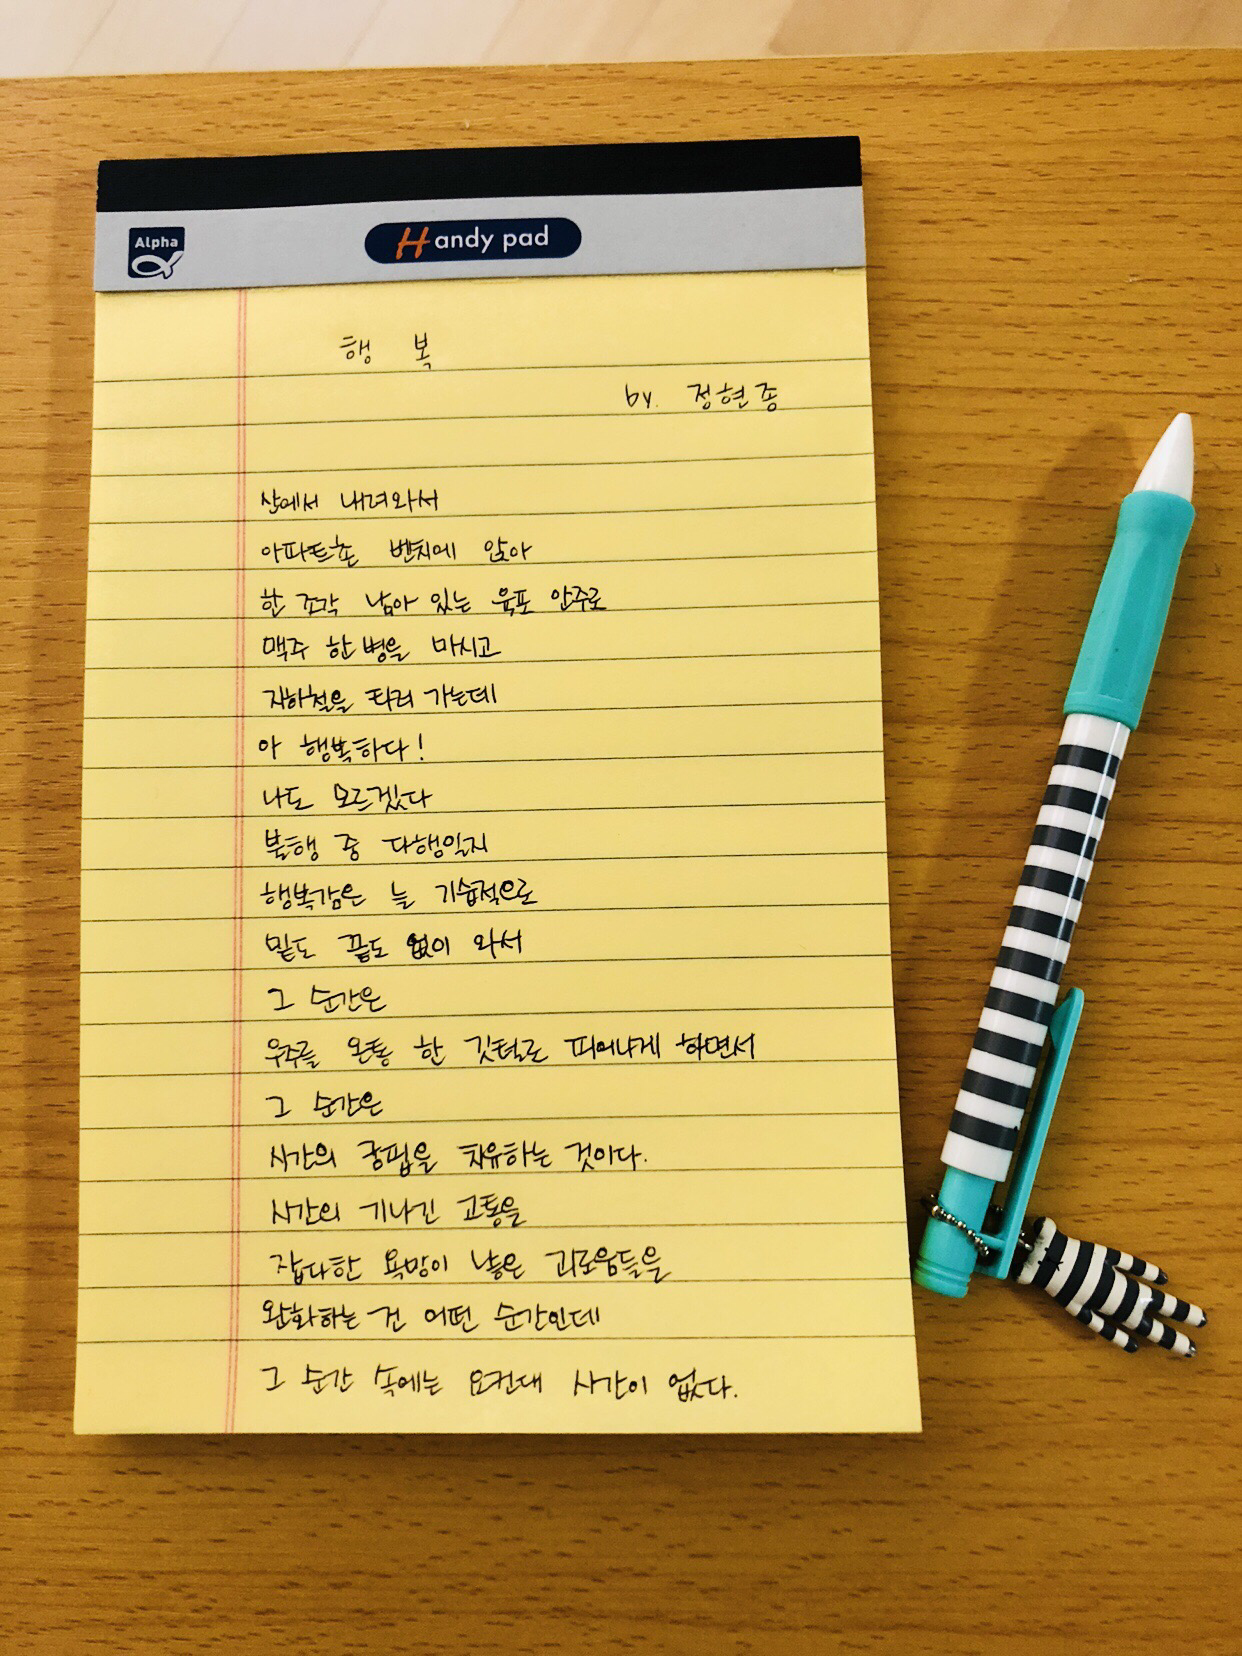 Alpha
Handy pad
행 복
by. 정현종
산에서 내려와서
아파트촌 벤치에 앉아
한 조각 남아 있는 육포 안주로
맥주 한 병을 마시고
지하철을 타러 가는데
아 행복하다!
나도 모르겠다
불행 중 다행일지
행복감은 늘 기습적으로
밑도 끝도 없이 와서
그 순간은
우주를 온통 한 깃털로 피어나게 하면서
그 순간은
시간의 궁핍을 치유하는 것이다.
시간의 기나긴 고통을
잡다한 욕망이 낳은 괴로움들을
완화하는 건 어떤 순간인데
그 순간 속에는 요컨대 시간이 없다.